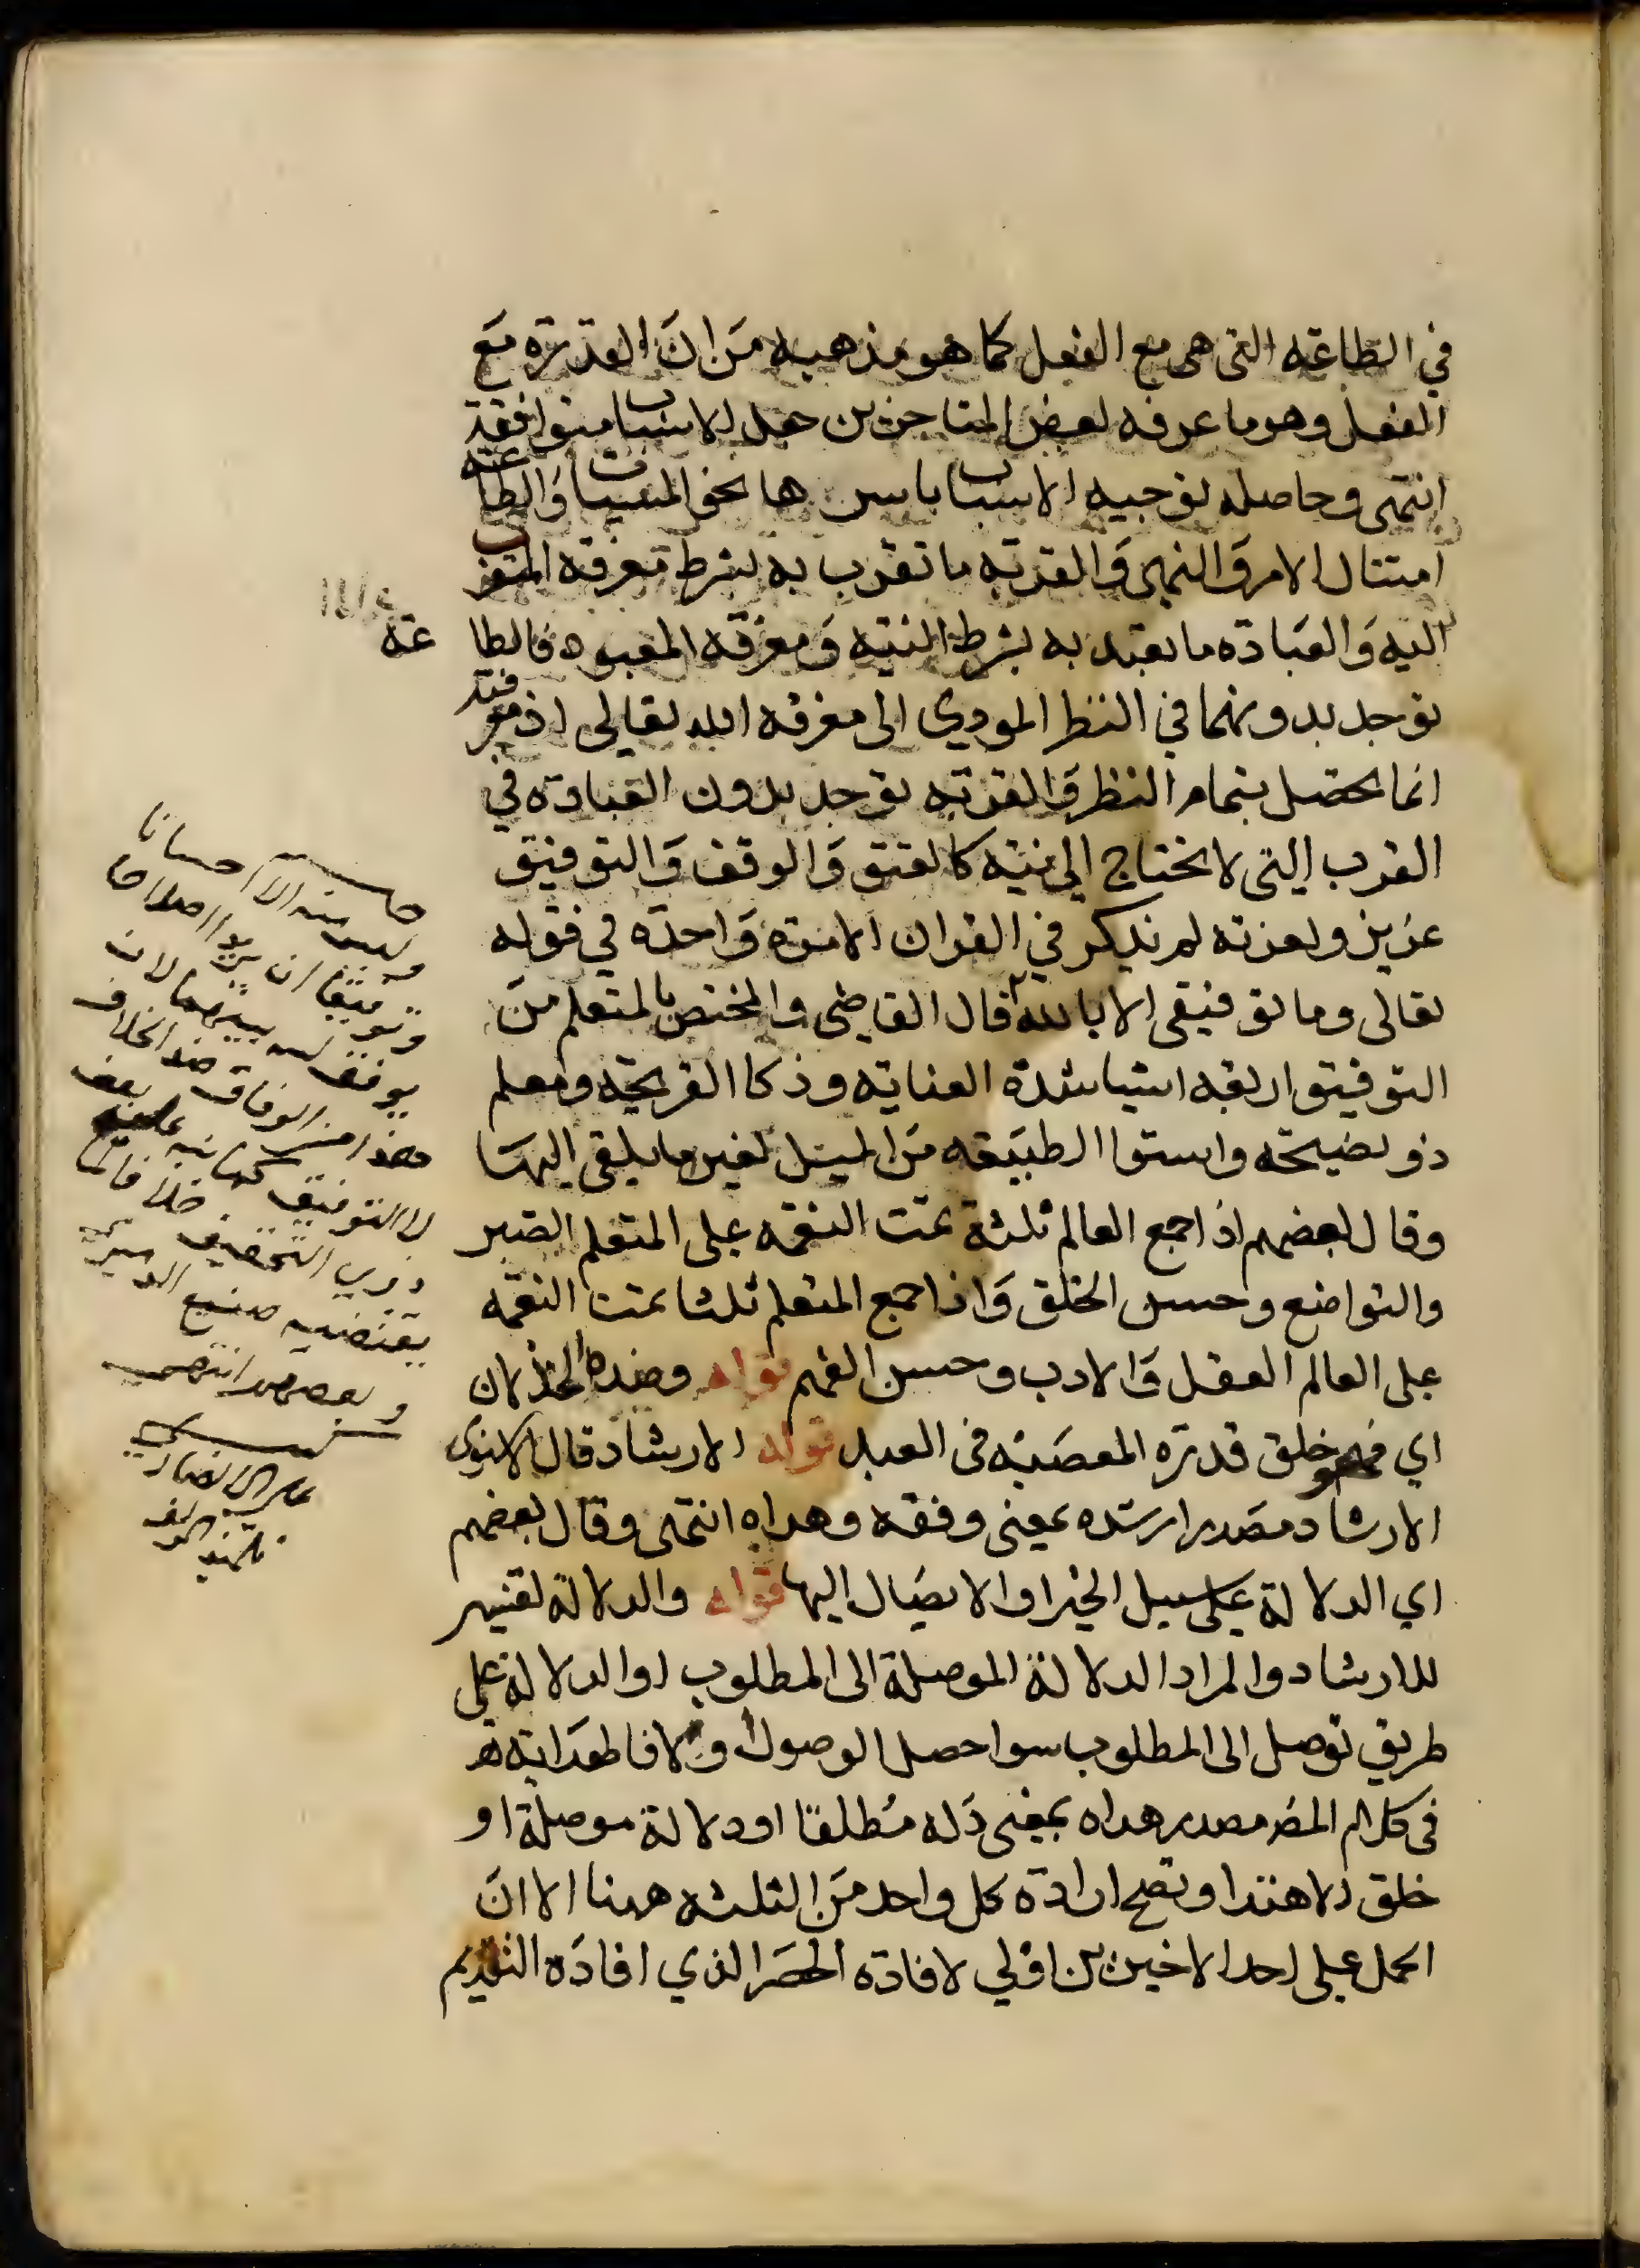 في الطاعة التي هي مع الفعل كما هو مذهبه من ان القدرة مع
الفعل وهو ما عرفه بعض المتاخرين جعل الاسباب متوافقة
انتهى وحاصله توجيه الاسباب باسرها نحو المسببات والطاعة
امتثال الامر والنهي والقربة ما تقرب به بشرط معرفة المتقرب
اليه والعبادة ما تعبد به بشرط النية ومعرفة المعبود فالطاعة
توجد بدونهما في النظر المودي الى معرفة الله تعالى اذ معرفته
انما تحصل بتمام النظر والقربة توجد بدون العبادة في
القرب التي لا تحتاج الى نية كالعتق والوقف والتوفيق
عزيز ولعزته لم يذكر في القران الا مرة واحدة في قوله
تعالى وما توفيقي الا بالله قال القاضي والمختص بالمتعلم من
التوفيق اربعة اشيا شدة العناية وذكا القريحة ومعلم
ذو نصيحة واستوا الطبيعة من الميل لغير ما يلقى اليها
وقال بعضهم اذا جمع العالم ثلثة تمت النعمة على المتعلم الصبر
والتواضع وحسن الخلق واذا جمع المتعلم ثلثا تمت النعمة
على العالم العقل والادب وحسن الفهم قوله وضده الخذلان
اي فهو خلق قدرة المعصية في العبد قوله الارشاد قال
الارشاد مصدر ارشده بمعنى وفقه وهداه انتهى وقال بعضهم
اي الدلالة على سبيل الخير او الايصال اليها قوله والدلالة تفسير
للارشاد والمراد الدلالة الموصلة الى المطلوب او الدلالة على
طريق توصل الى المطلوب سوا حصل الوصول او لا فالهداية
في كلام المص مصدر هداه بمعنى دله مطلقا او دلالة موصلة او
خلق الاهتدا وتصح ارادة كل واحد من الثلثة هنا الا ان
الحمل على احد الاخيرين اولي لافادة الحصر الذي افاده التقديم
وليس منه الا احسانا
وتوفيقا ان يريدا اصلاحا
يوفق الله بينهما لان
هذا من الوفاق ضد الخلاف
لا التوفيق
خلافا لما
يقتضيه صنيع
وبعضهم انتهى